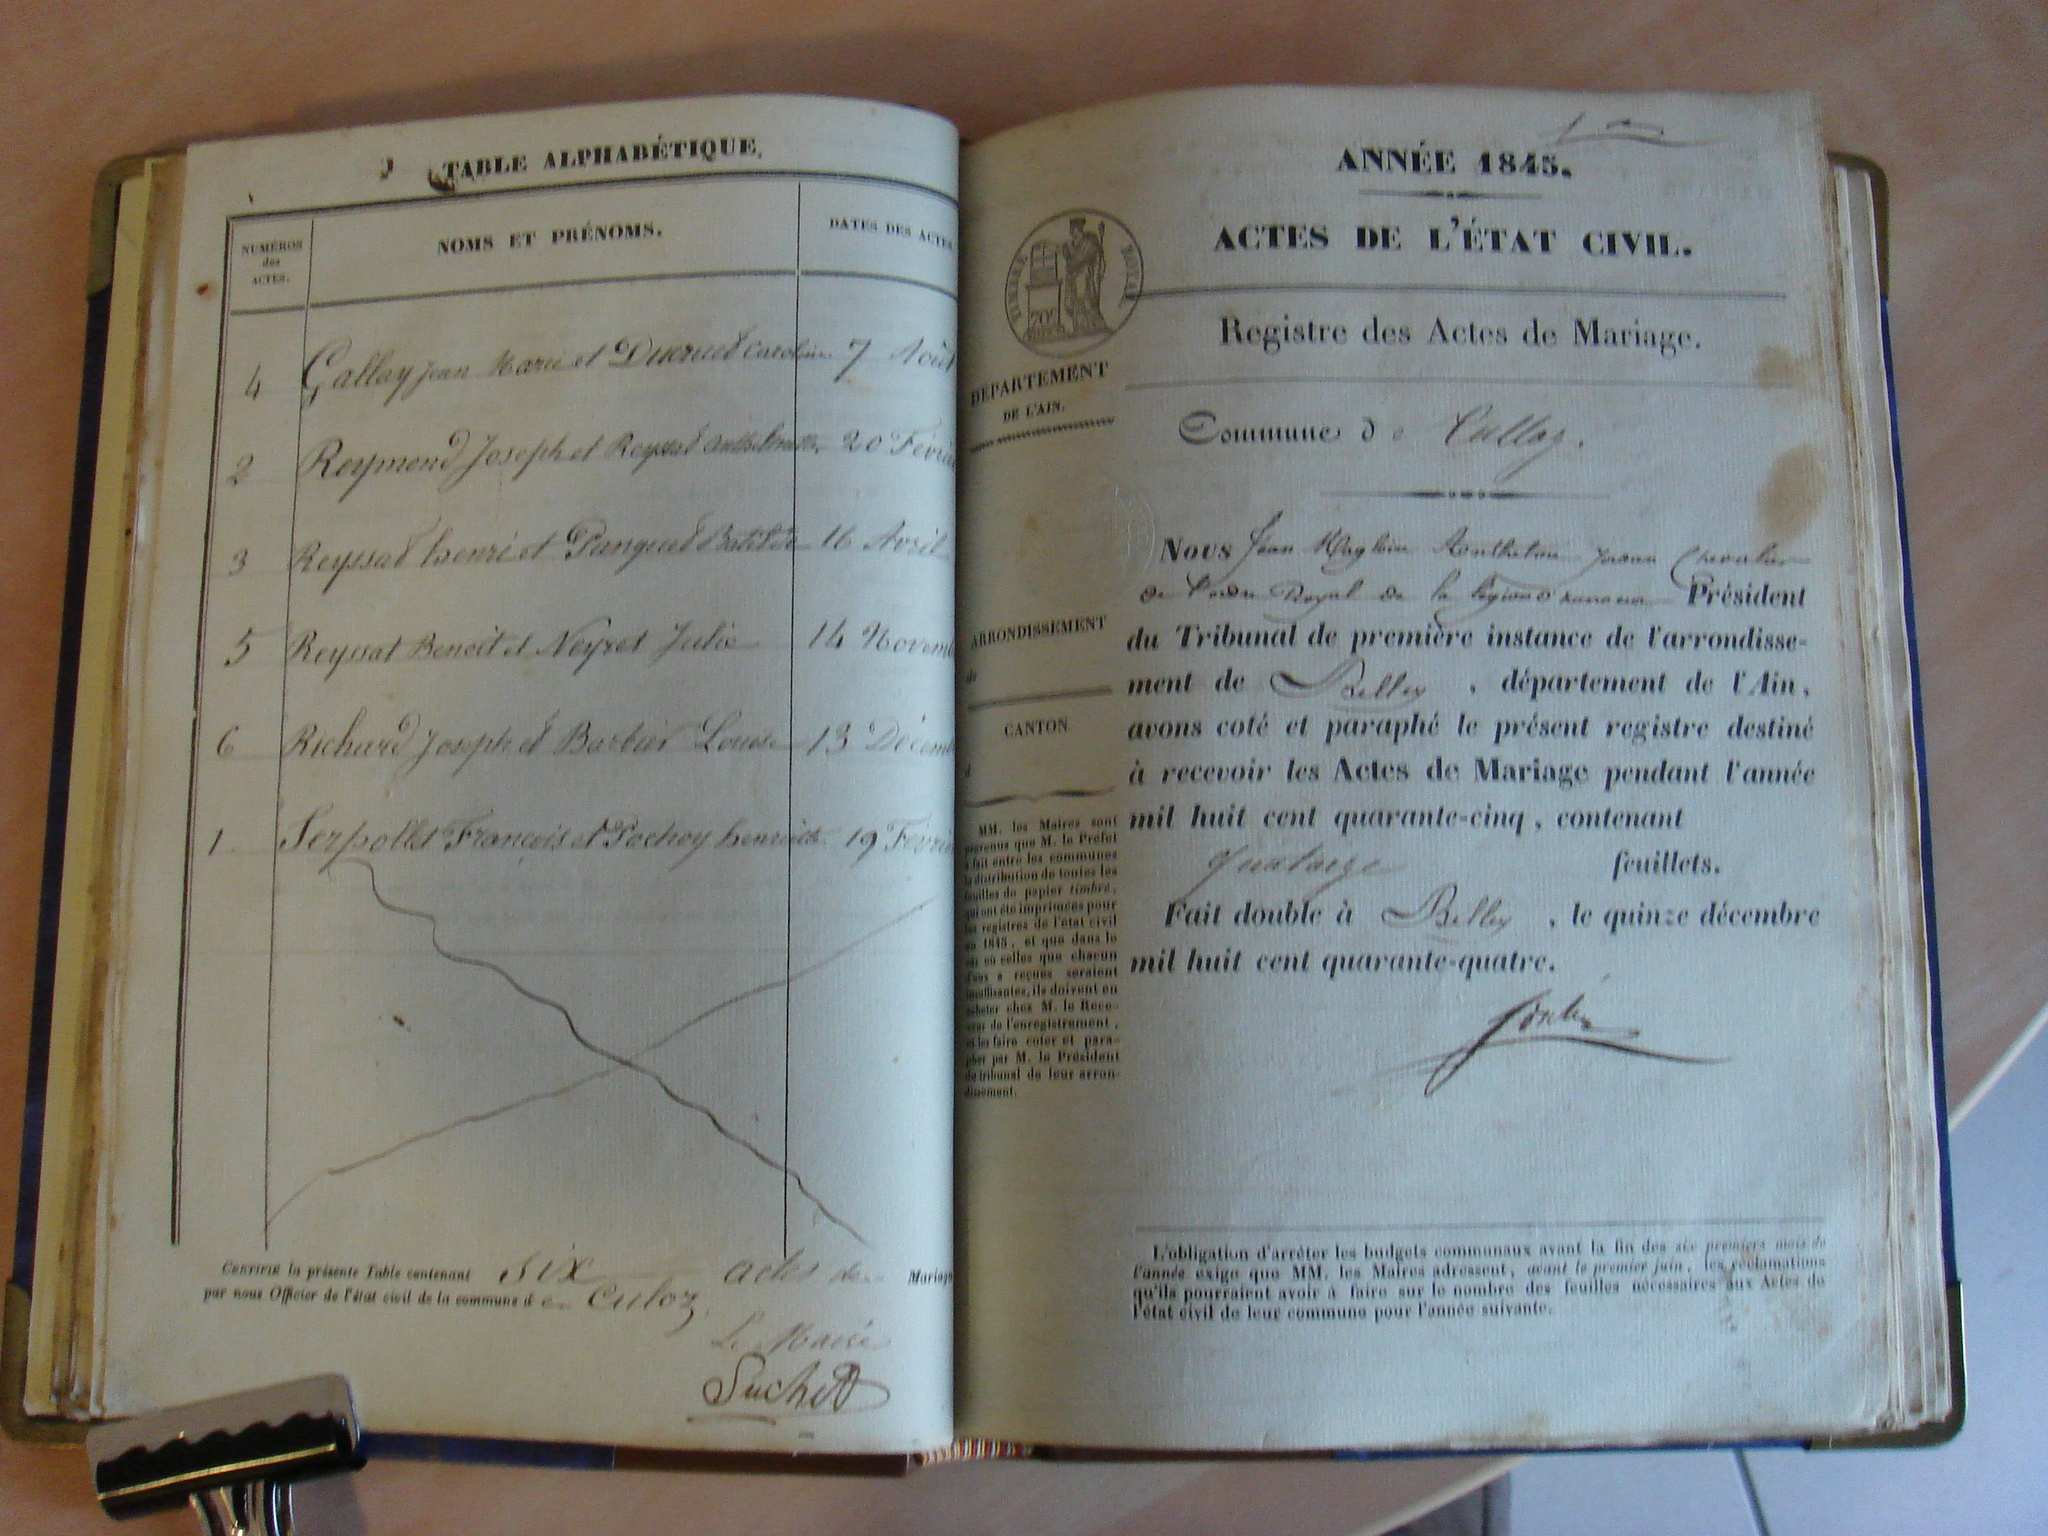 TABLE ALPHABÉTIQUE.
NUMÉROS
des
ACTES.
NOMS ET PRÉNOMS.
DATES DES ACTES
4 Gallay Jean Marie et Ducruet Caroline 7 Août
2 Reymond Joseph et Reyssat 20 Février
3 Reyssat henri et Panguet 16 Avril
5 Reyssat Benoit et Neyret Julie 14 Novemb
6 Richard Joseph et Barbier Louise 13 Décemb
1. Serpollet François et Pochoy henriette 19 Février
CERTIFIÉ la présente Table contenant six actes de Mariage
par nous Officier de l'état civil de la commune d e Culoz.
Le Maire
Suchet
ANNÉE 1845.
ACTES DE L'ÉTAT CIVIL.
TIMBRE ROYAL
70c
Registre des Actes de Mariage.
DÉPARTEMENT
DE L'AIN.
Commune d e Culloz.
Nous Jean Chevalier
de l'ordre Royal de la légion d'honneur Président
du Tribunal de première instance de l'arrondisse-
ment de Belley, département de l'Ain,
avons coté et paraphé le présent registre destiné
à recevoir les Actes de Mariage pendant l'année
mil huit cent quarante-cinq, contenant
quatorze feuillets.
Fait double à Belley, le quinze décembre
mil huit cent quarante-quatre.
ARRONDISSEMENT
de
CANTON
d
MM. les Maires sont
prévenus que M. le Préfet
a fait entre les communes
la distribution de toutes les
feuilles de papier timbré,
qui ont été imprimées pour
les registres de l'état civil
en 1845, et que dans le
cas où celles que chacun
d'eux a reçues seraient
insuffisantes, ils doivent en
acheter chez M. le Rece-
veur de l'enregistrement,
et les faire coter et para-
pher par M. le Président
du tribunal de leur arron-
dissement.
L'obligation d'arrêter les budgets communaux avant la fin des six premiers mois de
l'année exige que MM. les Maires adressent, avant le premier juin, les réclamations
qu'ils pourraient avoir à faire sur le nombre des feuilles nécessaires aux Actes de
l'état civil de leur commune pour l'année suivante.